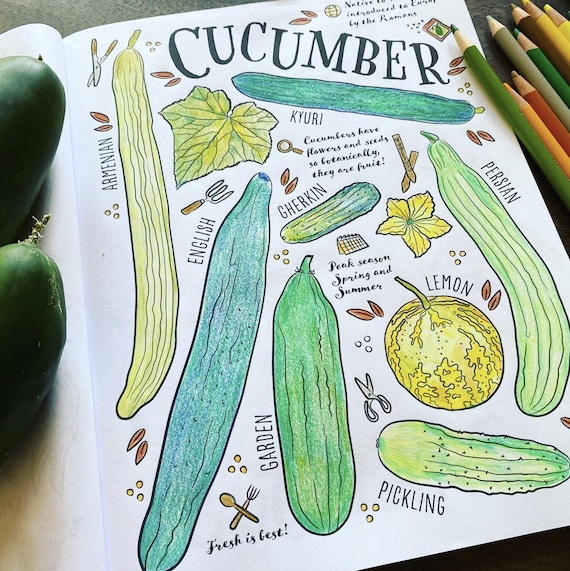 Native to
introduced to Europ
by the Romans
CUCUMBER
KYURI
ARMENIAN
Cucumbers have
flowers and seeds
so botanically,
they are fruit!
PERSIAN
GHERKIN
ENGLISH
Peak season
Spring and
Summer
LEMON
GARDEN
PICKLING
Fresh is best!